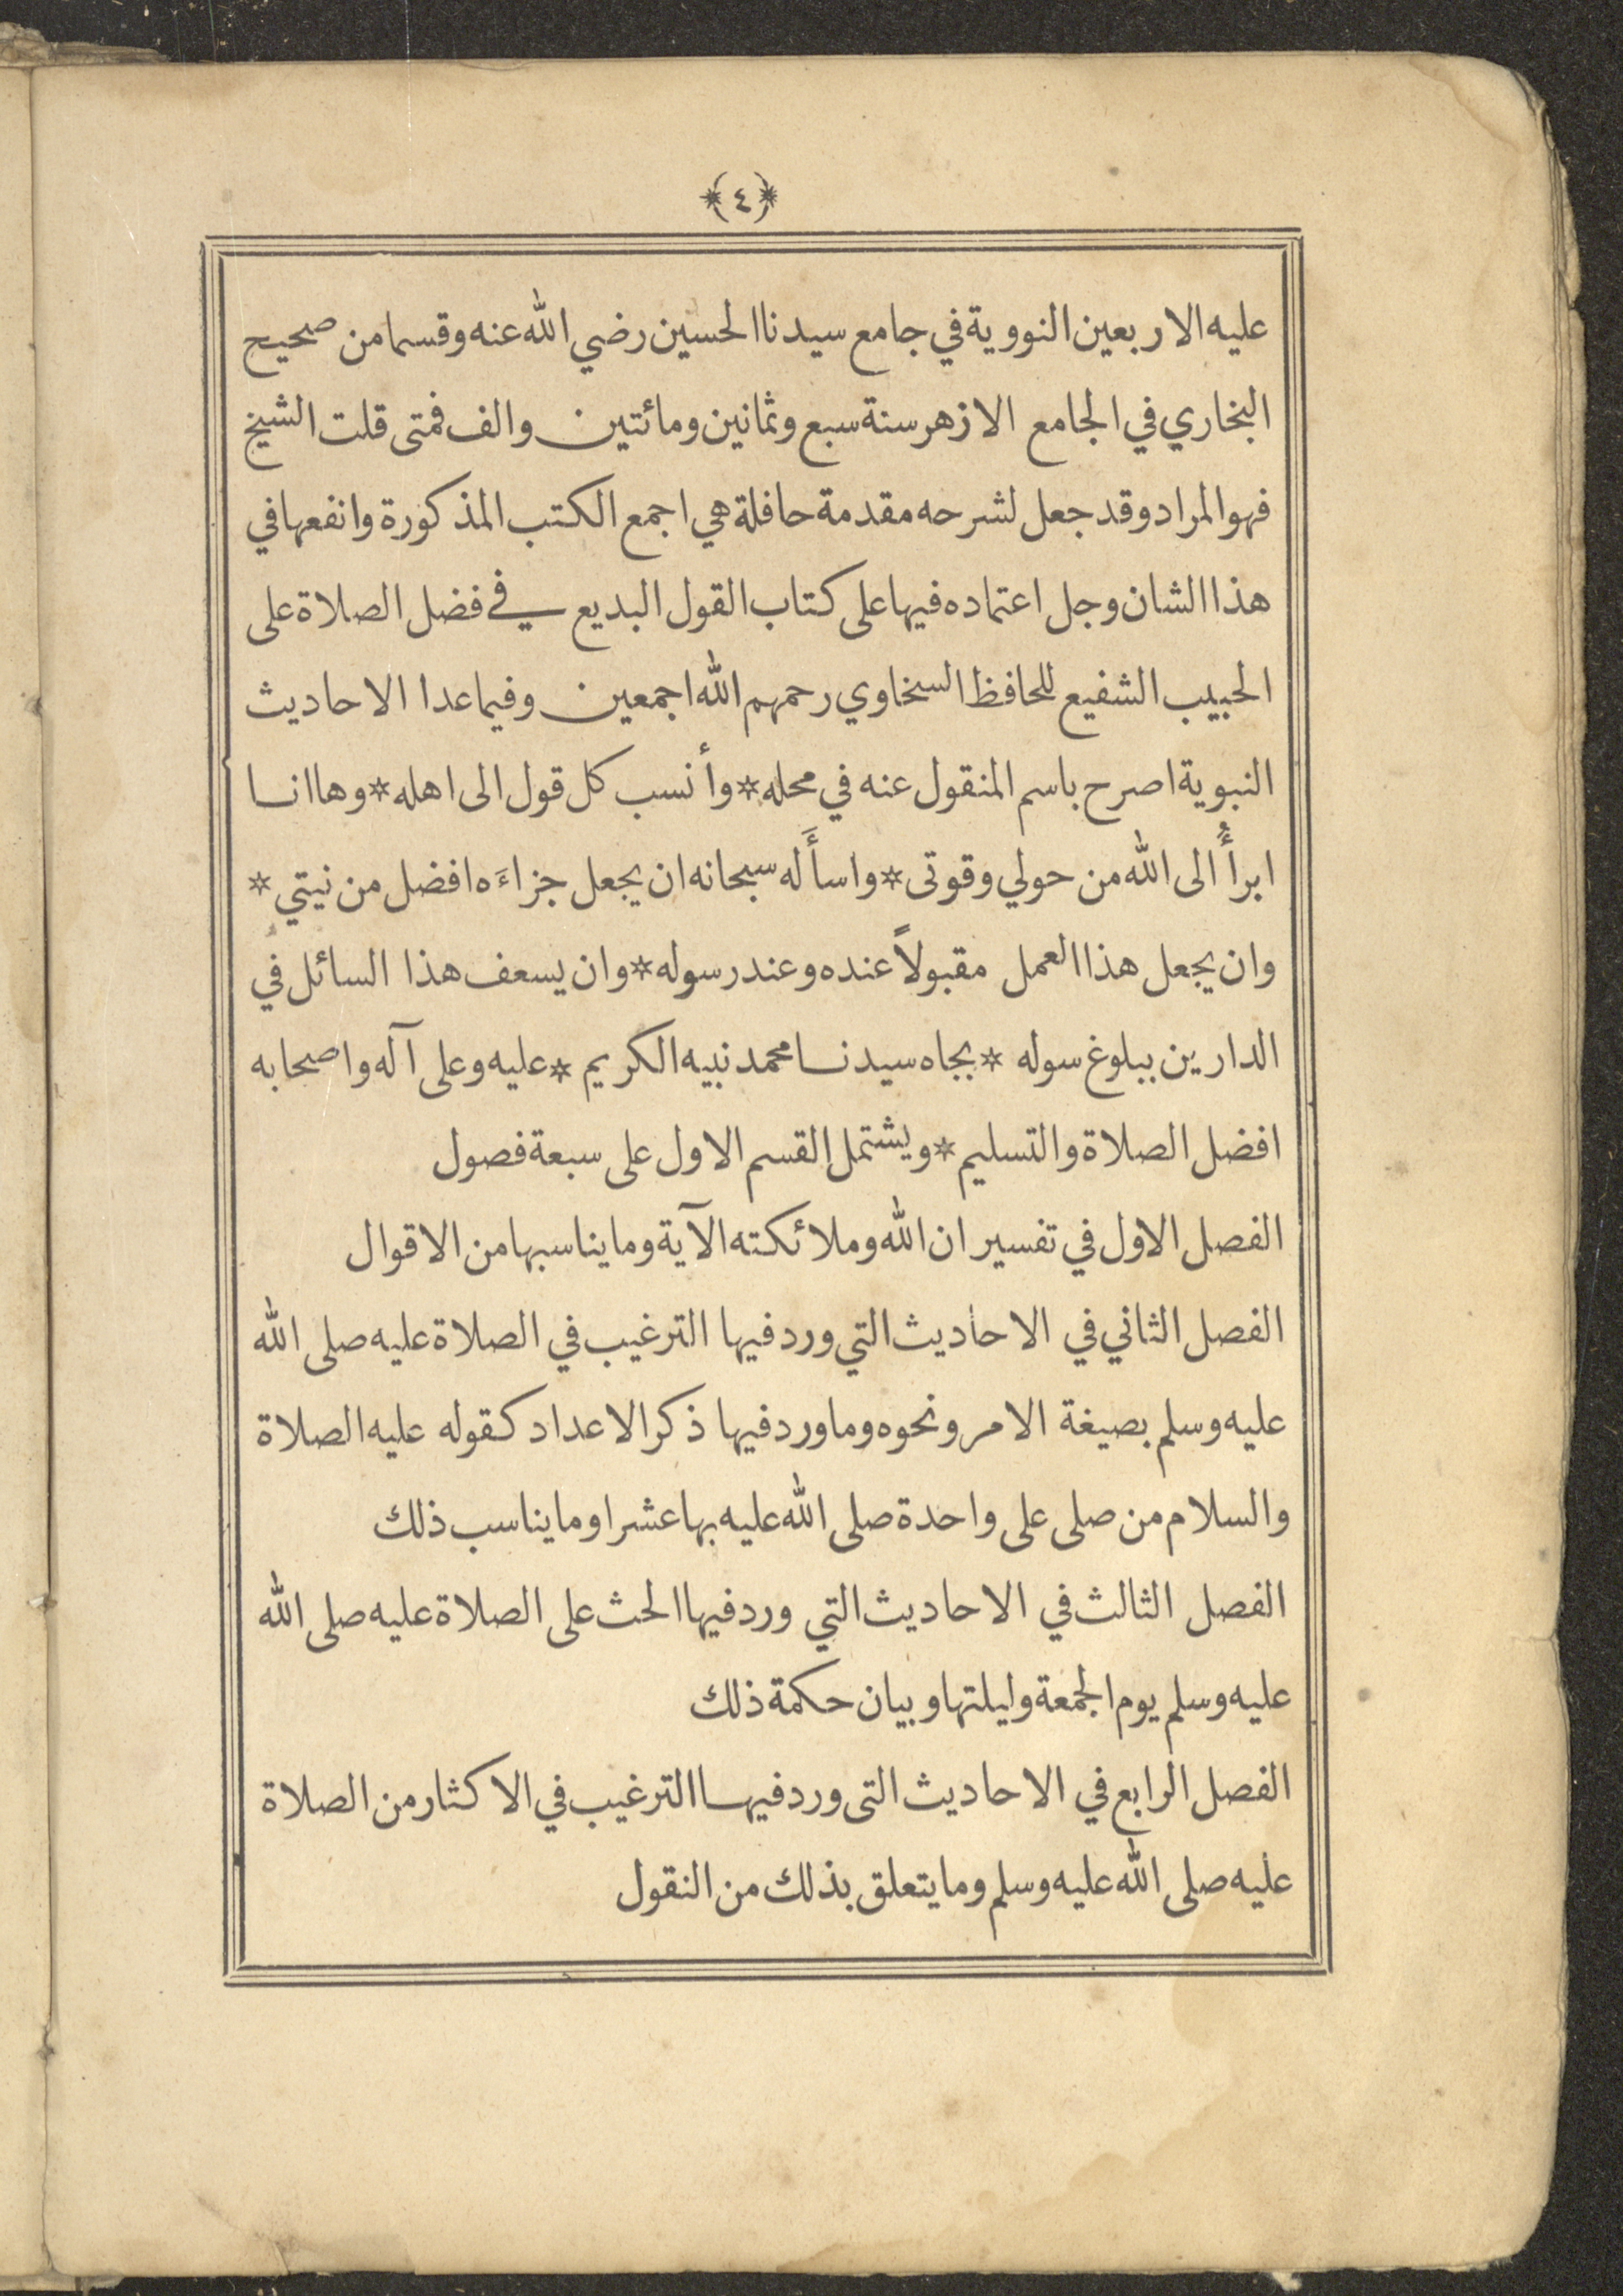 ﴿٤﴾
عليه الاربعين النووية في جامع سيدنا الحسين رضي الله عنه وقسما من صحيح
البخاري في الجامع الازهر سنة سبع وثمانين ومائتين والف فمتى قلت الشيخ
فهو المراد وقد جعل لشرحه مقدمة حافلة هي اجمع الكتب المذكورة وانفعها في
هذا الشان وجل اعتماده فيها على كتاب القول البديع في فضل الصلاة على
الحبيب الشفيع للحافظ السخاوي رحمهم الله اجمعين وفيما عدا الاحاديث
النبوية اصرح باسم المنقول عنه في محله * وأنسب كل قول الى اهله * وها انا
ابرأُ الى الله من حولي وقوتى * واسأَله سبحانه ان يجعل جزاءَه افضل من نيتي *
وان يجعل هذا العمل مقبولاً عنده وعند رسوله * وان يسعف هذا السائل في
الدارين ببلوغ سوله * بجاه سيدنا محمد نبيه الكريم * عليه وعلى آله واصحابه
افضل الصلاة والتسليم * ويشتمل القسم الاول على سبعة فصول
الفصل الاول في تفسير ان الله وملائكته الآية وما يناسبها من الاقوال
الفصل الثاني في الاحاديث التي ورد فيها الترغيب في الصلاة عليه صلى الله
عليه وسلم بصيغة الامر ونحوه وما ورد فيها ذكر الاعداد كقوله عليه الصلاة
والسلام من صلى على واحدة صلى الله عليه بها عشرا وما يناسب ذلك
الفصل الثالث في الاحاديث التي ورد فيها الحث على الصلاة عليه صلى الله
عليه وسلم يوم الجمعة وليلتها وبيان حكمة ذلك
الفصل الرابع في الاحاديث التى ورد فيها الترغيب في الاكثار من الصلاة
عليه صلى الله عليه وسلم وما يتعلق بذلك من النقول